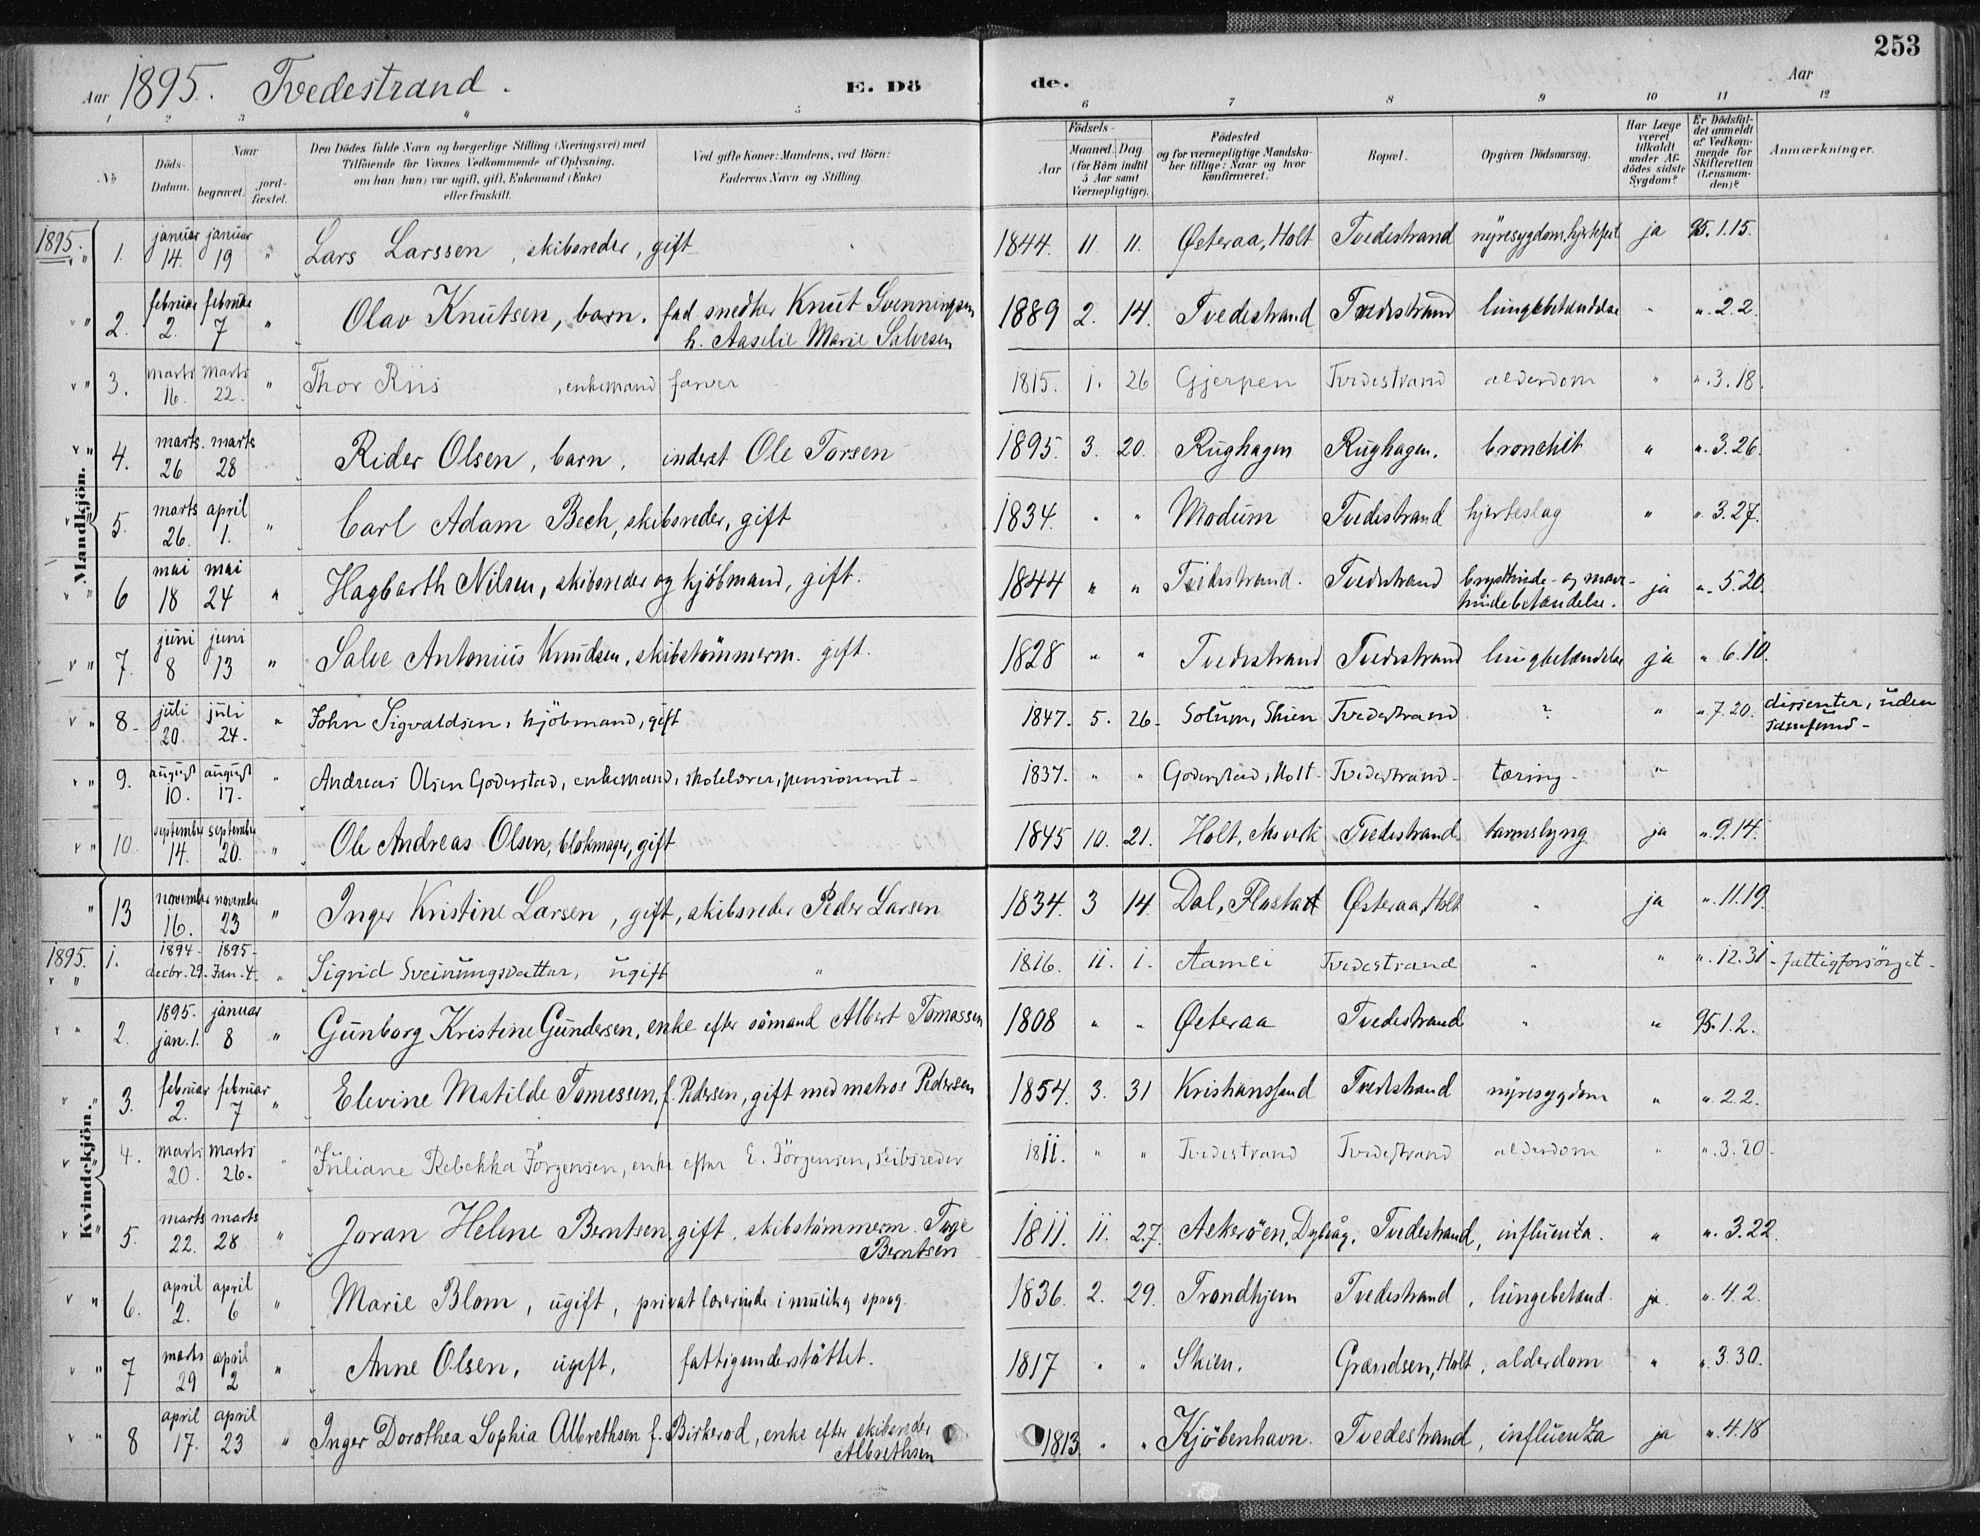 253
Aar 1895. Tvedestrand.
E. Dö
de.
Aar
1 2 3 4 5 6 7 8 9 10 11 12
No
Döds-Datum.
Naar
begravet.
jord-fæstet.
Den Dödes fulde Navn og borgerlige Stilling (Næringsvei) med
Tilföiende for Voxnes Vedkommende af Oplysning,
om han (hun) var ugift, gift, Enkemand (Enke)
eller fraskilt.
Ved gifte Koner: Mandens, ved Börn:
Faderens Navn og Stilling
Födsels-
Aar
Maaned. Dag.
(for Börn indtil
5 Aar samt
Værnepligtige).
Födested
og for værnepligtige Mandska-
ber tillige: Naar og hvor
konfirmeret.
Bopæl.
Opgiven Dödsaarsag.
Har Læge
været
tilkaldt
under Af-
dödes sidste
Sygdom?
Er Dödsfal-
det anmeldt
af Vedkom-
mende for
Skifteretten
(Lensman-
den)?
Anmærkninger.
Mandkjön.
1895. 1. januar 14. januar 19 " Lars Larssen, skibsreder, gift 1844. 11. 11. Østeraa, Holt Tvedestrand nyresygdom, hjertefeil ja 95.1.15.
" 2. februar 2. februar 7 " Olav Knutsen, barn. fad. snedker Knut Svenningsen
h. Aaselie Marie Salvesen 1889 2. 14. Tvedestrand Tvedestrand lungebetændelse " ".2.2.
" 3. marts 16. marts 22. " Thor Riis, enkemand farver 1815. 1. 26 Gjerpen Tvedestrand alderdom " ".3.18.
" 4. marts 26 marts 28 Rider Olsen, barn, inderst Ole Torsen 1895. 3. 20. Rughagen Rughagen. bronchit " ".3.26.
5. marts 26. april 1. " Carl Adam Bech, skibsreder, gift 1834. " " Modum Tvedestrand hjerteslag " ".3.27.
" 6 mai 18 mai 24 " Hagbarth Nilsen, skibsreder og kjöbmand, gift. 1844 " " Tvedestrand. Tvedestrand brysthinde- og mave-
hindebetændelse. ja ".5.20.
" 7. juni 8 juni 13 " Salve Antonius Knudsen, skibstömmerm. gift. 1828 " " Tvedestrand Tvedestrand lungbetændelse ja ".6.10.
" 8. juli 20. juli 24. " John Sigvaldsen, kjöbmand, gift 1847. 5. 26. Solum, Skien Tvedestrand ? " ".7.20. dissenter, uden
samfund
" 9. august 10. august 17. " Andreas Olsen Goderstad, enkemand, skolelærer, pensioneret 1837. " " Goderstad, Holt. Tvedestrand tæring "
" 10. september 14. september 20. " Ole Andreas Olsen, blokmager, gift 1845 10. 21. Holt, Tvedestrand tarmslyng ja ".9.14.
" 13 november 16. november 23 " Inger Kristine Larsen, gift, skibsreder Peder Larsen 1834. 3 14. Dal, Flosta Østeraa, Holt " ja ".11.19.
Kvindekjön.
1895. 1. 1894 decbr. 29. 1895 Jan. 4. " Sigrid Sveinungsdatter, ugift " 1816. 11. 1. Aamli Tvedestrand " " ".12.31 fattigforsörget
" 2. 1895. jan. 1. januar 8 " Gunborg Kristine Gundersen, enke efter sömand Albert Tomassen 1808 " " Østeraa Tvedestrand " " 95.1.2.
" 3. februar 2. februar 7 " Elevine Matilde Tomessen, f. Pedersen, gift med matros Pedersen 1854. 3. 31 Kristianssand Tvedestrand nyresygdom " ".2.2.
" 4. marts 20. marts 26. " Juliane Rebekka Jörgensen, enke efter E. Jörgensen, skibsreder 1811. " " Tvedestrand Tvedestrand alderdom " ".3.20.
" 5. marts 22. marts 28 " Joran Helene Berntsen, gift, skibstömmerm. Terje
Berntsen 1811. 11. 27. Askeröen, Dybvåg. Tvedestrand, influenza. " ".3.22.
" 6. april 2. april 6 " Marie Blom, ugift, privat lærerinde i musik og sprog. 1836. 2. 29. Trondhjem Tvedestrand, lungebetænd. ja. ".4.2.
" 7 marts 29 april 2 " Anne Olsen, ugift, fattigunderstöttet. 1817 " " Skien. Grændsen, Holt, alderdom " ".3.30.
" 8 april 17. april 23 " Inger Dorothea Sophia Albrethsen f. Birkerod, enke efter skibsreder
Albrethsen 1813. " " Kjöbenhavn. Tvedestrand, influenza ja ".4.18